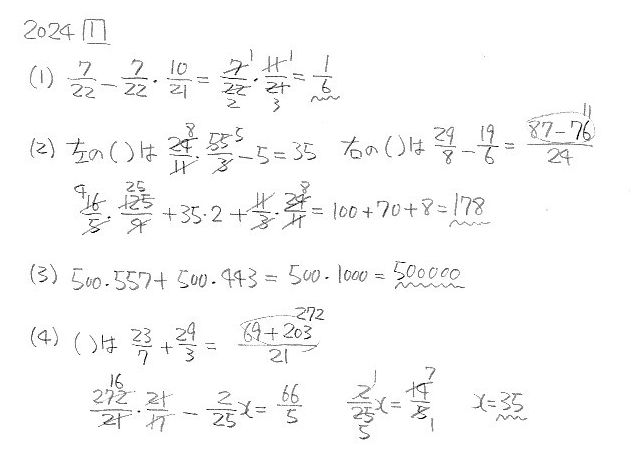 2024 1
(1) 7/22 - 7/22 · 10/21 = 7/22 · 11/21 = 1/6
(2) 左の( )は 24/11 · 55/3 - 5 = 35 右の( )は 29/8 - 19/6 = (87-76)/24 11
16/5 · 125/4 + 35·2 + 11/3 · 24/11 = 100+70+8 = 178
(3) 500·557 + 500·443 = 500·1000 = 500000
(4) ( )は 23/7 + 29/3 = (69+203)/21 272
272/21 · 21/17 - 2/25 x = 66/5 2/25 x = 14/5 x = 35